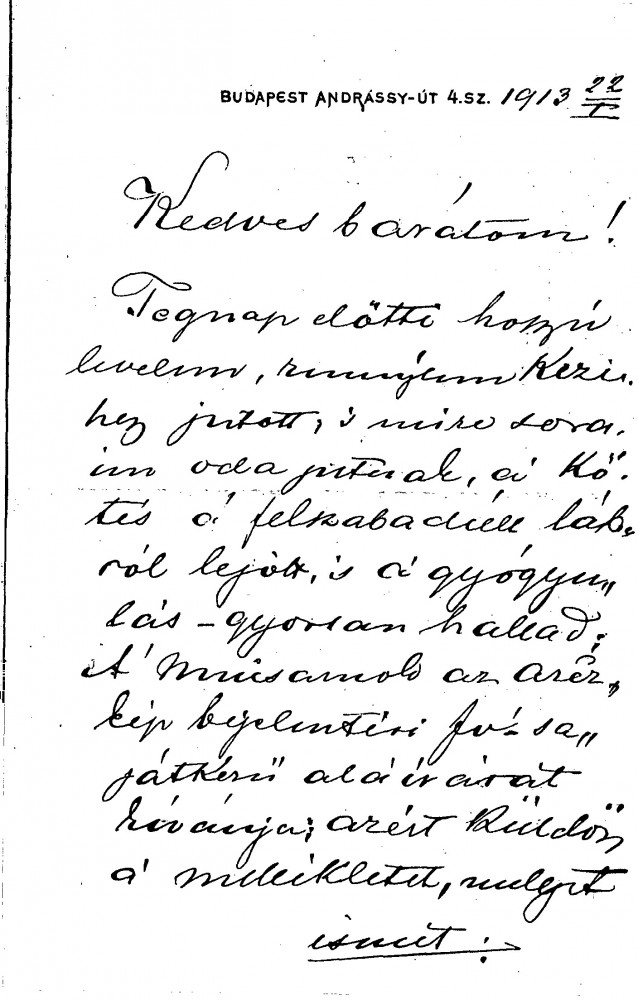 BUDAPEST ANDRÁSSY-ÚT 4.SZ. 1913 22/I
Kedves barátom!
Tegnap előtti hosszú
levelem, remélem kezei-
hez jutott; s mire sora-
im oda jutnak, a kö-
tés a felszabadult láb-
ról lejött, s a gyógyu„
lás - gyorsan hallad;
A Műcsarnok az arcz„
kép bejelentési ív sa„
játkezű aláírását
kívánja; azért küldöm
a mellékletet, melyet
ismét: